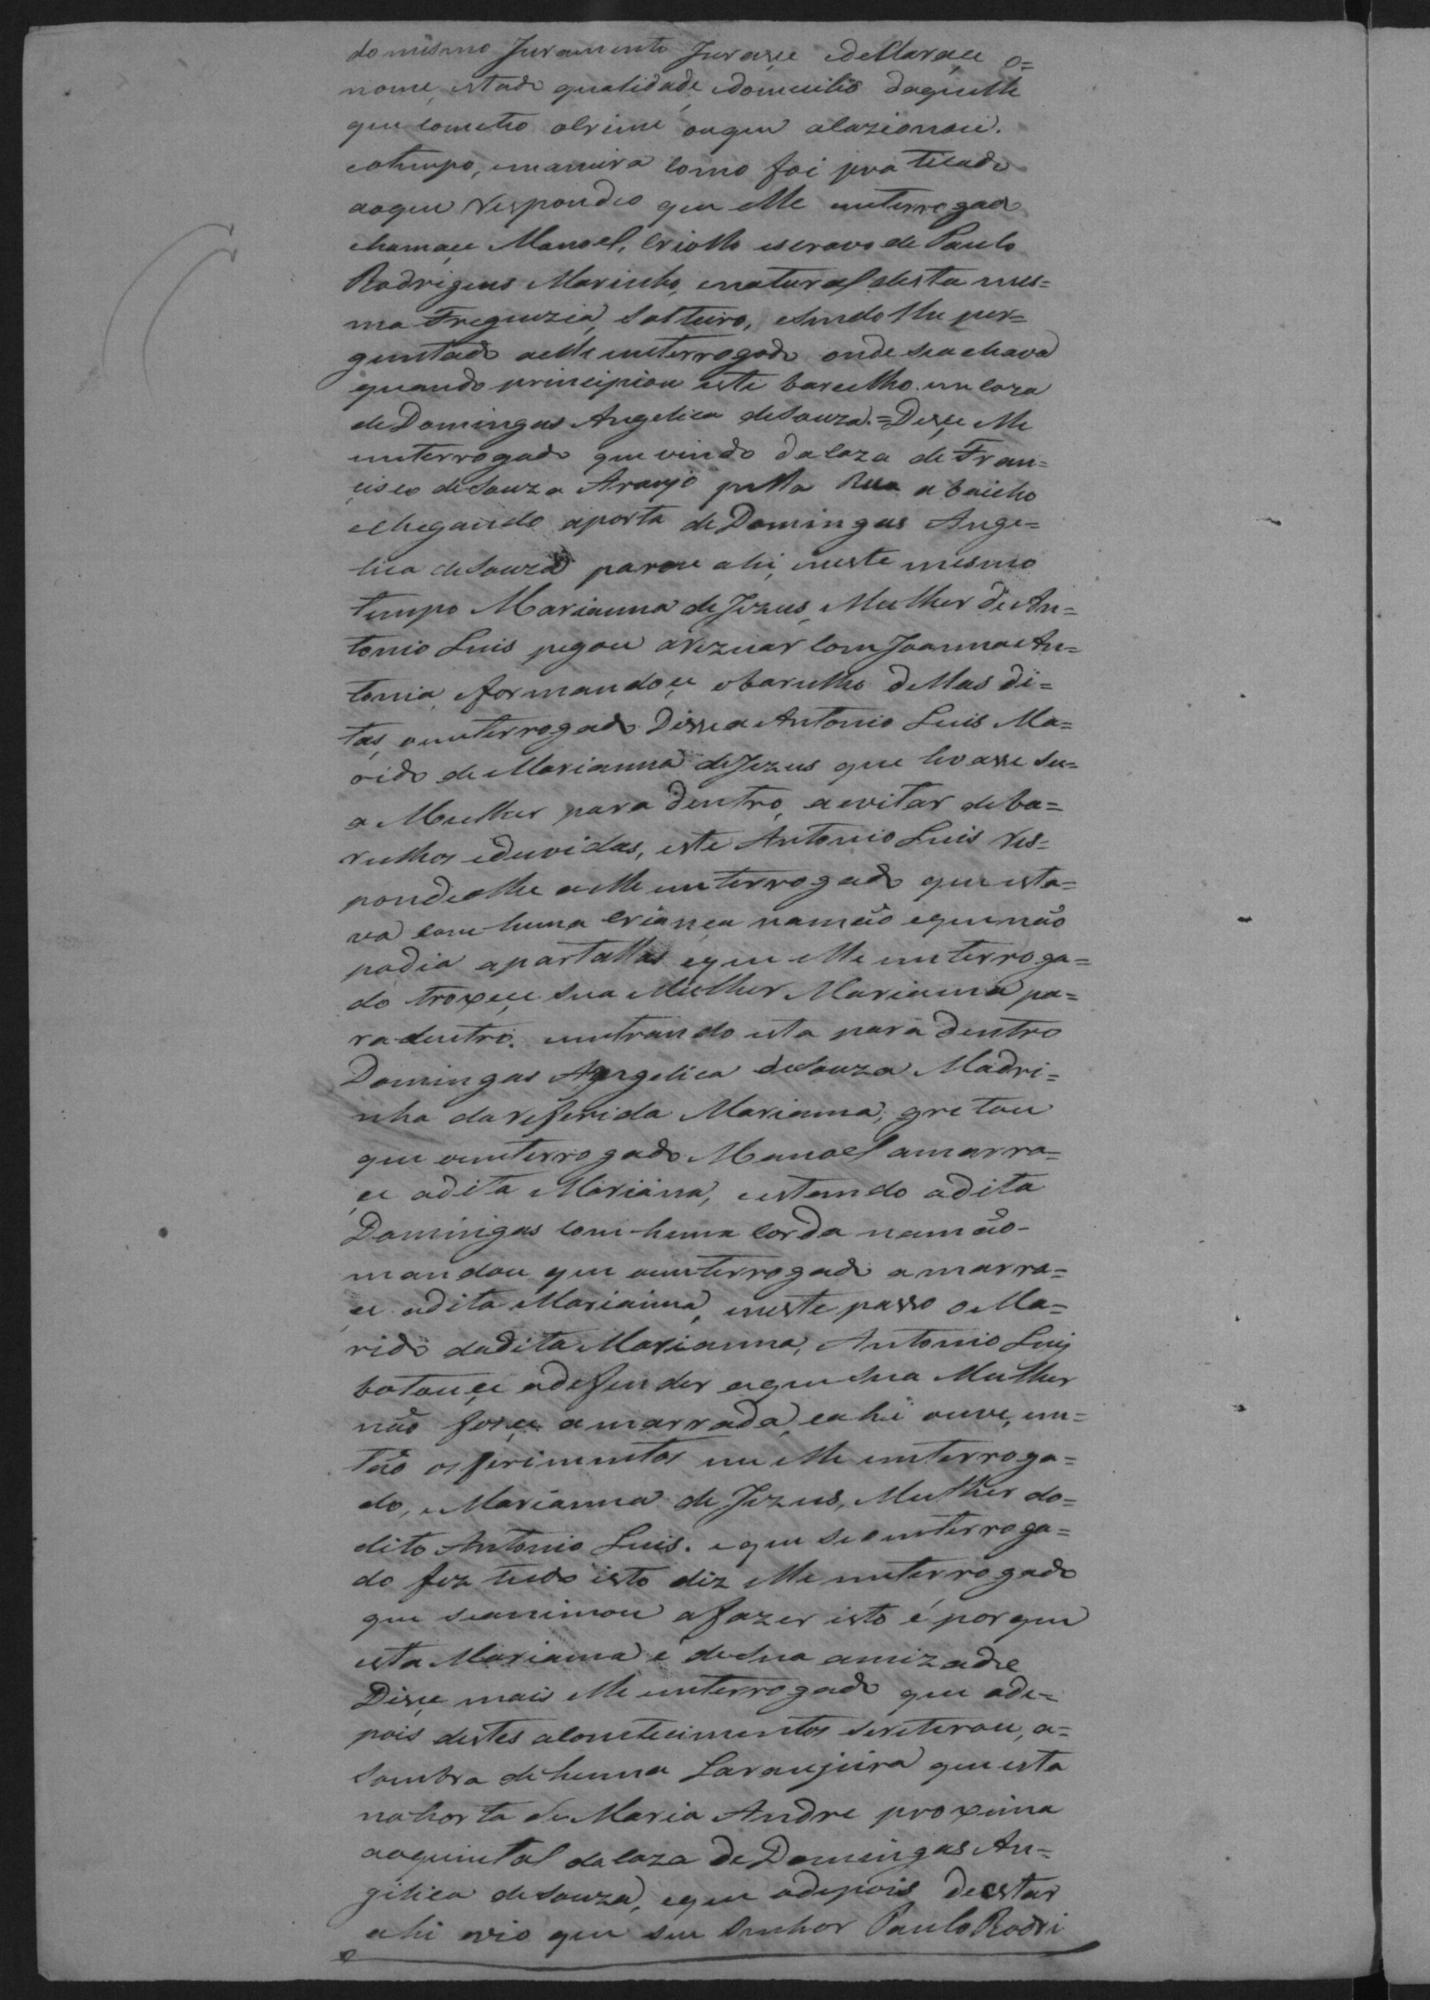 do mêsmo Juramento Juraçe edeClaraçe o=
nome, estado qualidade, edomicilio daquelle
que cometeo oCrime ouque alazionou.
eotempo, emaneira como foi pra ticado
aoque Respondeo que elle enterrogado
chamaçe Manoel, Criollo escravo de Paulo
Rodrigues Marinho, enatural desta mes=
ma Freguezia, Solteiro, esendo lhe per=
guntado aelle enterrogado onde seachava
quando principiou este barulho em Caza
de Domingas Angelica deSouza.= Diçe elle
enterrogado que vindo daCaza de Fran=
cisco deSouza Araujo pella Rua abaicho
echegando aporta de Domingas Ange=
lica deSouza parou ahi, eneste mesmo
tempo Marianna de Jezus, Mulher de An=
tonio Luis pegou arezuar Com Joanna An=
tonia, eformandoçe obarulho dellas di=
tas, oenterrogado Disse a Antonio Luis Ma=
rido de Marianna de Jezus que levasse su=
a Mulher para dentro, aevitar deba=
rulhos eduvidas, este Antonio Luis Res=
pondeolhe aelle enterrogado que esta=
va Com huma Criança namão eque não
podia apartallas eque elle enterroga=
do troxeçe sua Mulher Marianna pa=
ra dentro. eentrando esta para dentro
Domingas Angelica deSouza Madri=
nha da referida Marianna, gretou
que oenterrogado Manoel amarra=
çe adita Mariana, eestando adita
Domingas Com huma Corda namão
mandou que oenterrogado amarra=
çe adita Marianna, eneste passo oMa=
rido dadita Marianna, Antonio Luis
botouçe adefender aque sua Mulher
não foçe amarrada, eahi ouve, en=
tão osferimentos em elle enterroga=
do, eMarianna de Jezus, Mulher do=
dito Antonio Luis. eque seoenterroga=
do fez tudo isto diz elle enterrogado
que seanimou afazer isto é porque
esta Marianna é desua amizade
Diçe mais elle enterrogado que ade=
pois destes aContecimentos seretirou, a=
sombra de huma Laranjeira que esta
nahorta de Maria Andre proxima
aoquintal daCaza de Domingas An=
gelica deSouza, eque adepois deestar
ahi ovio que seu Senhor Paulo Rodri